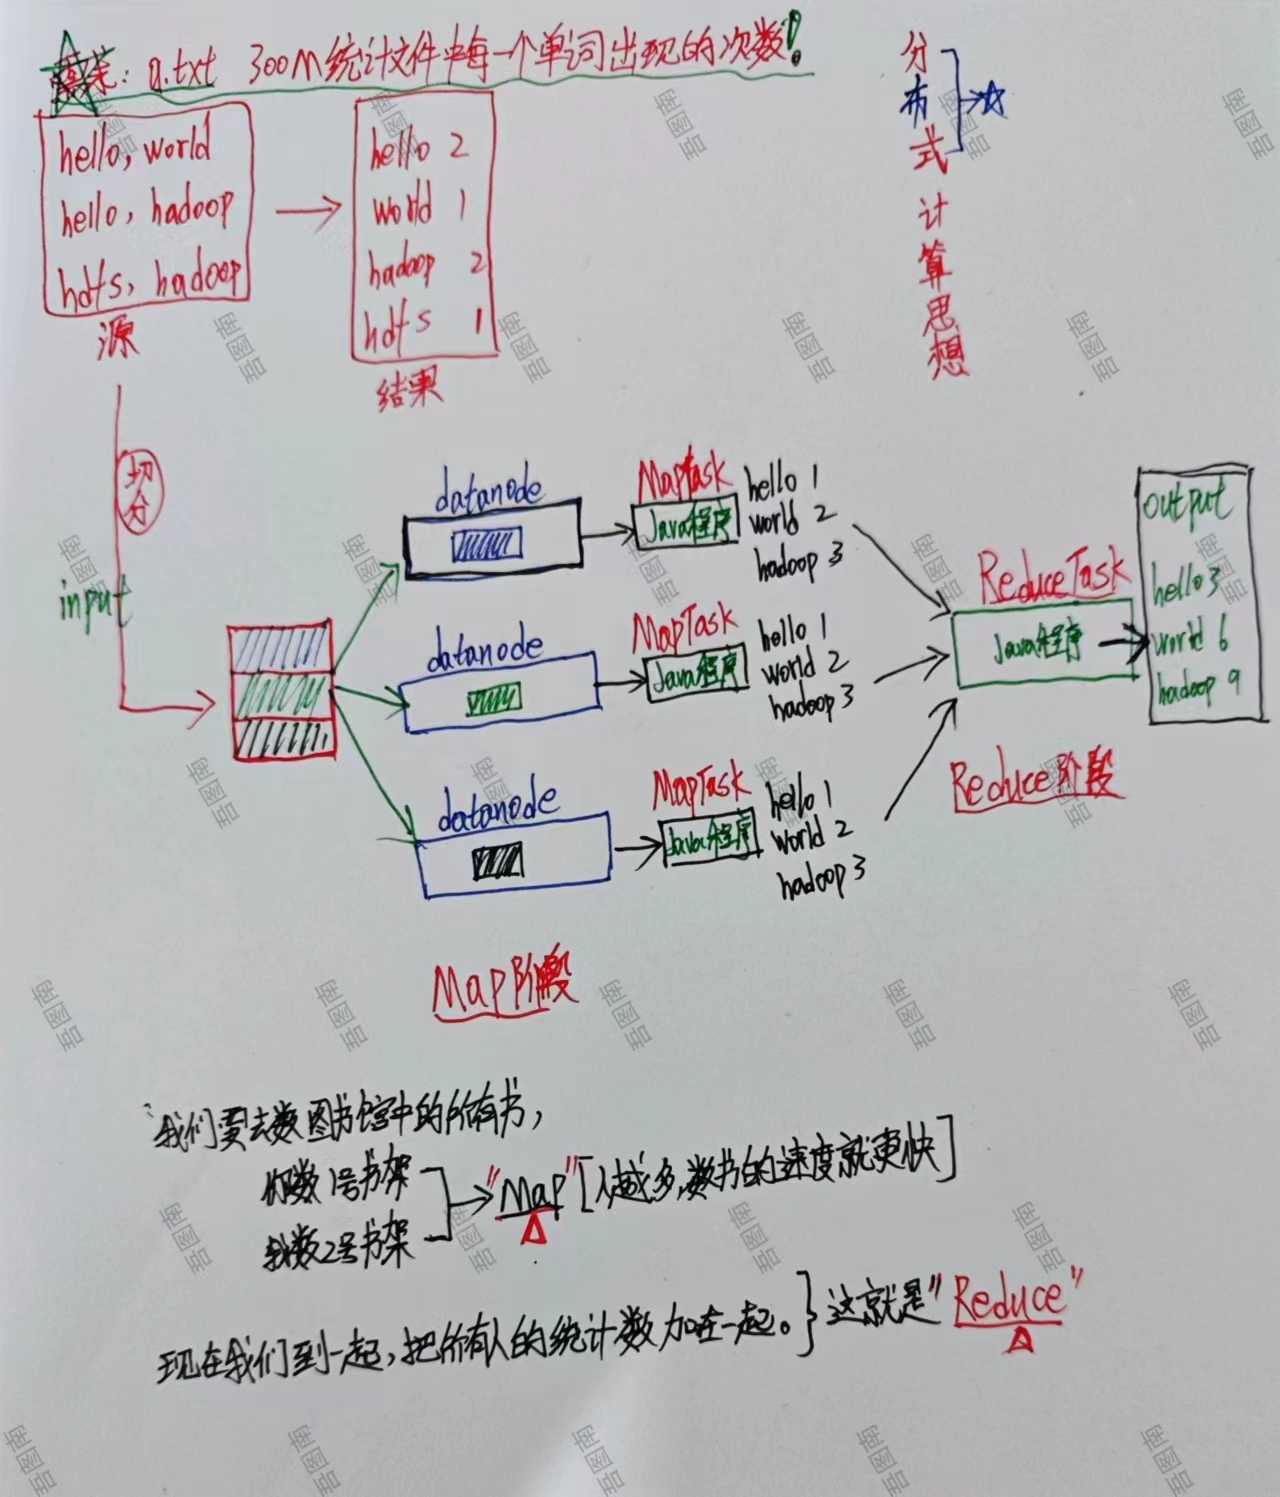 需求: a.txt 300M统计文件中每一个单词出现的次数!
hello, world
hello, hadoop
hdfs, hadoop
源
hello 2
world 1
hadoop 2
hdfs 1
结果
分布式计算思想
切分
input
datanode
MapTask
Java程序
hello 1
world 2
hadoop 3
datanode
MapTask
Java程序
hello 1
world 2
hadoop 3
datanode
MapTask
Java程序
hello 1
world 2
hadoop 3
Map阶段
ReduceTask
Java程序
Reduce阶段
output
hello 3
world 6
hadoop 9
我们要去数图书馆中的所有书,
你数1号书架
我数2号书架
"Map" [人越多,数书的速度就更快]
现在我们到一起,把所有人的统计数加在一起。} 这就是"Reduce"